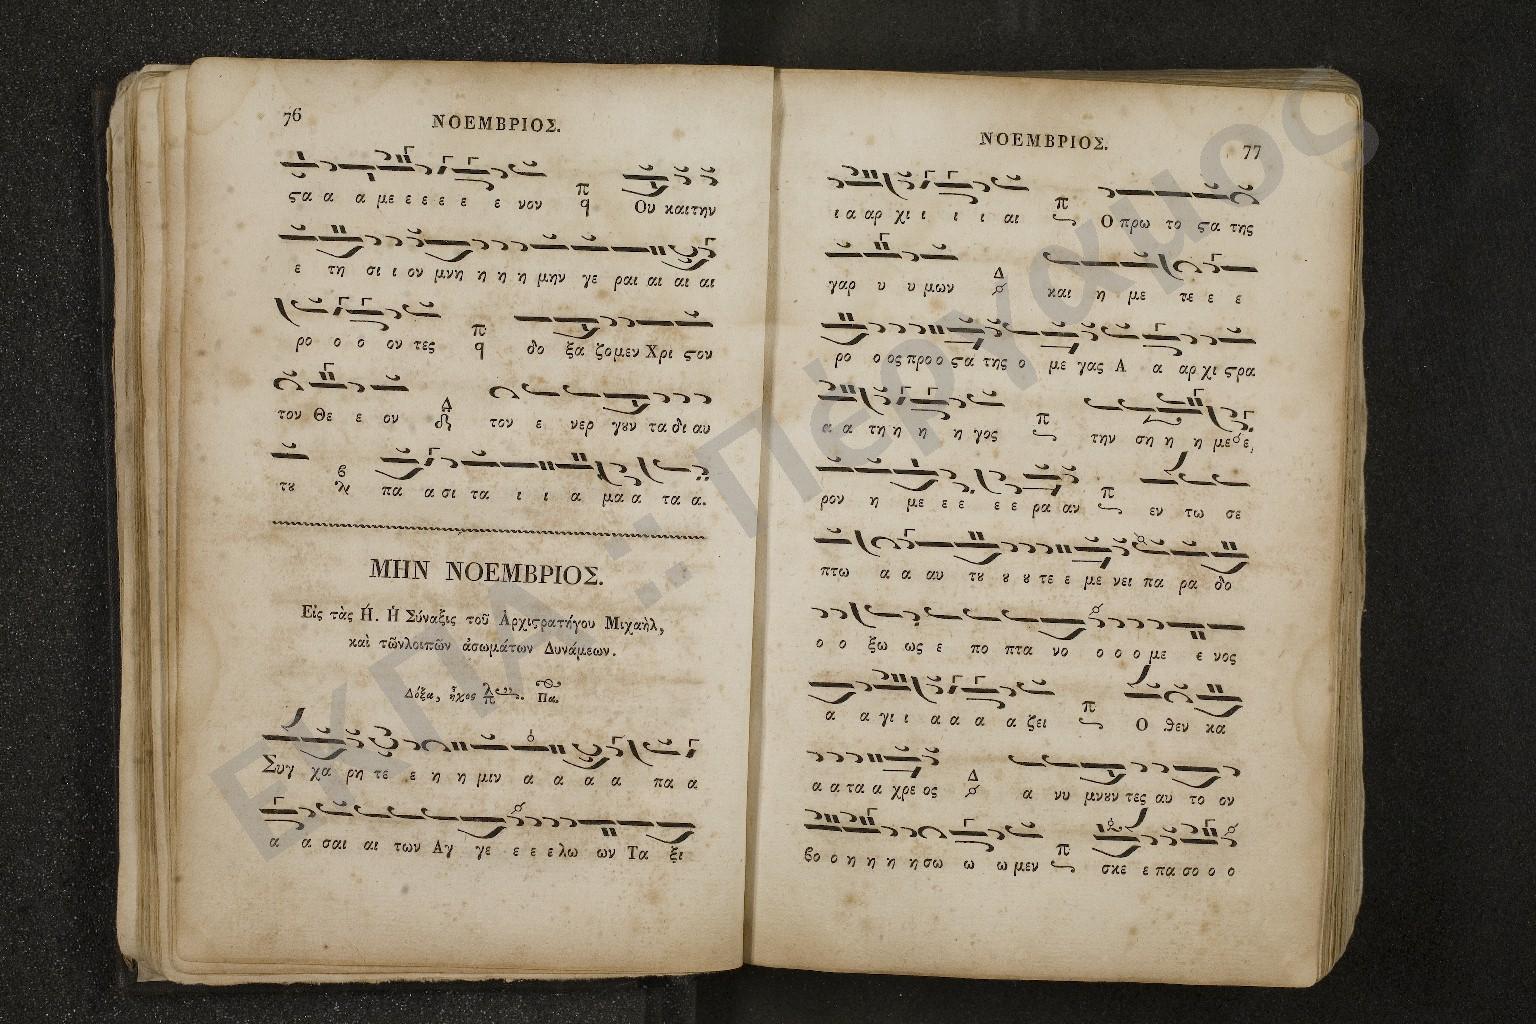 76
ΝΟΕΜΒΡΙΟΣ.
ϛα α α με ε ε ε ε ε νον π q Ου και την
ε τη σι ι ον μνη η η η μην γε ραι αι αι αι
ρο ο ο ον τες π q δο ξα ζομεν Χρι ϛον
τον Θε ε ον Δ τον ε νερ γȣν τα δι αυ
τȣ β πα α σι τα ι ι α μα α τα α.
ΜΗΝ ΝΟΕΜΒΡΙΟΣ.
Εἰς τὰς Ή. Ἡ Σύναξις τοῦ Ἀρχιϛρατήγου Μιχαὴλ,
καὶ τῶνλοιπῶν ἀσωμάτων Δυνάμεων.
Δόξα, ἦχος λ π Πα.
Συγ χα ρη τε ε η η μιν α α α α πα α
α α σαι αι των Αγ γε ε ε ε λω ων Τα ξι
ΝΟΕΜΒΡΙΟΣ.
77
ι α αρ χι ι ι ι αι π Ο πρω το ϛα της
γαρ υ υ μων Δ και η με τε ε ε
ρο ο ος προ ο ϛα της ο με γας Α α αρ χι ϛρα
α α τη η η η γος π την ση η η με ε
ρον η με ε ε ε ε ρα αν π εν τω σε
πτω α α αυ τȣ ȣ ȣ τε ε με νει πα ρα δο
ο ο ξω ως ε πο πτα νο ο ο ο με ε νος
α α γι ι α α α α ζει π Ο θεν κα
α α τα α χρε ος Δ α νυ μνȣν τες αυ το ον
βο ο η η η η σω ω ω μεν π σκε ε πα σο ο ο
ΕΚΠΑ :: Πέργαμος